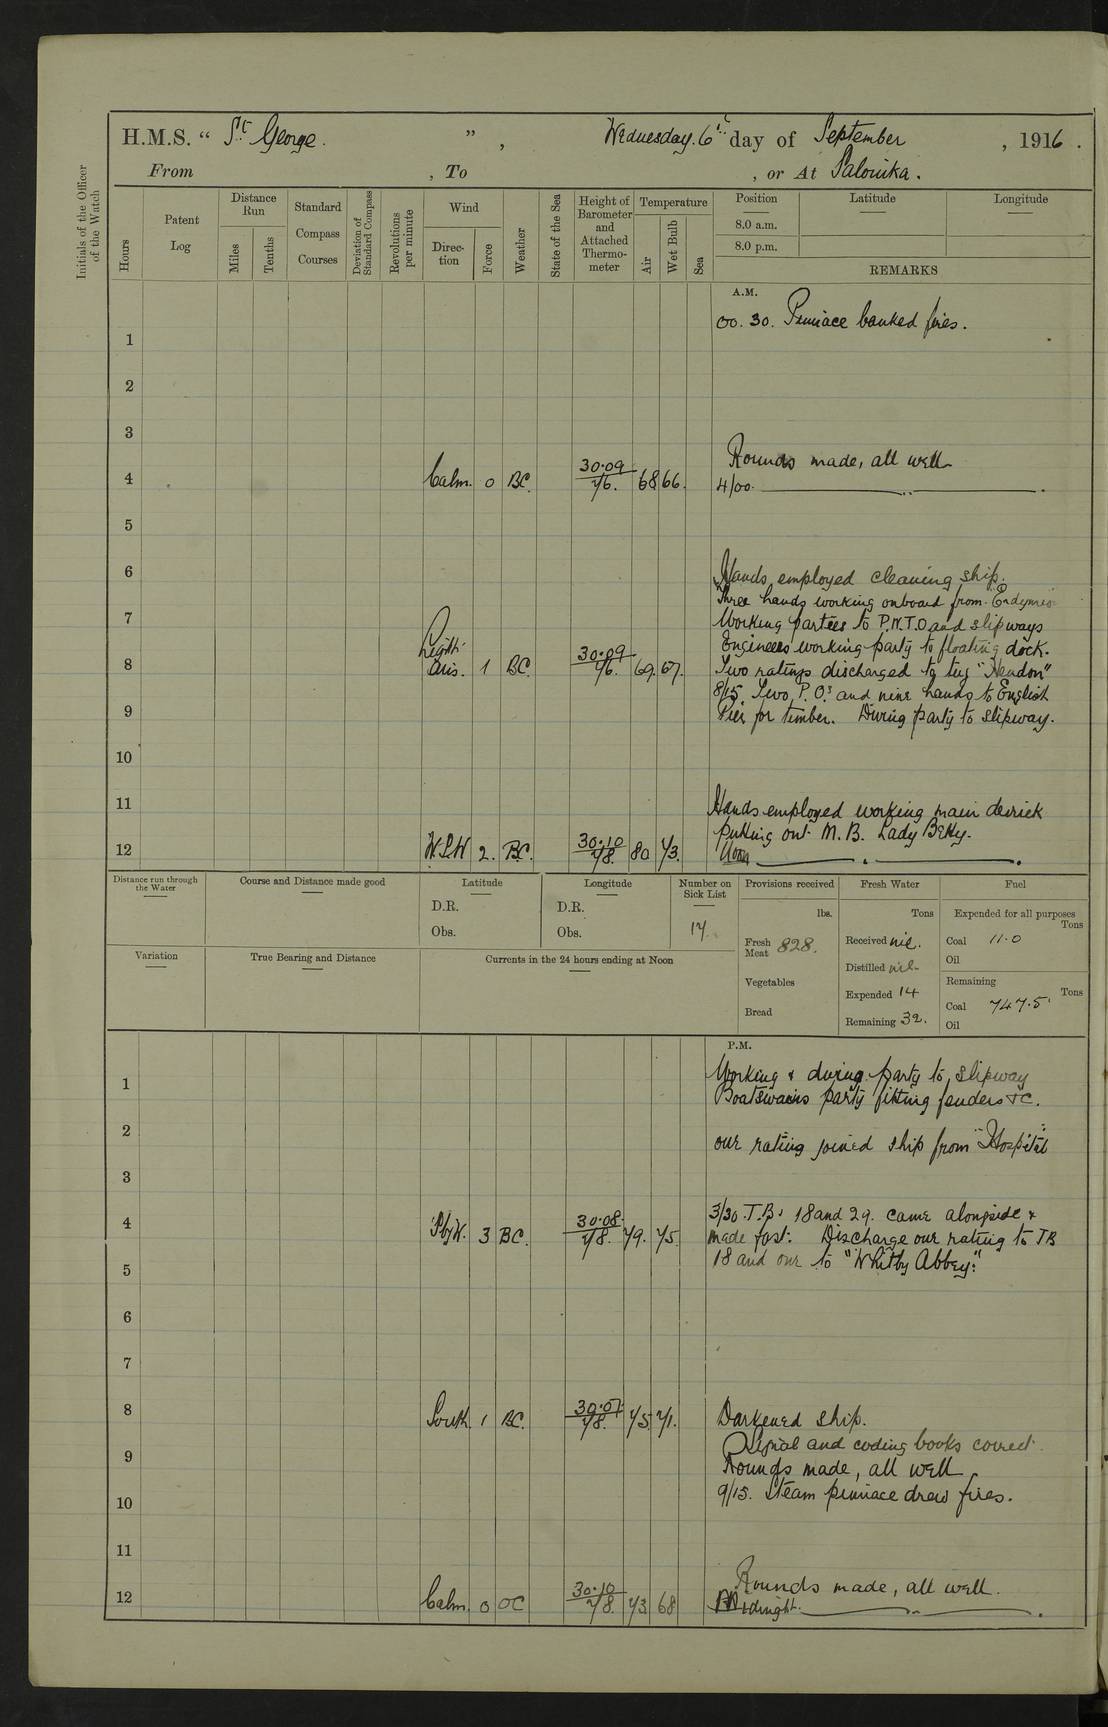 H.M.S. “ St. George. ”, Wednesday. 6th day of September , 1916 .
From , To , or At Salonika.
Initials of the Officer of the Watch
Hours
Patent Log
Distance Run
Miles
Tenths
Standard Compass Courses
Deviation of Standard Compass
Revolutions per minute
Wind
Direc-tion
Force
Weather
State of the Sea
Height of Barometer and Attached Thermo-meter
Temperature
Air
Wet Bulb
Sea
Position Latitude Longitude
8.0 a.m.
8.0 p.m.
REMARKS
A.M.
00.30. Pinnace banked fires.
1
2
3
Rounds made, all well
4 Calm. 0 BC. 30.09 76. 68 66. 4/00.
5
6 Hands employed cleaning ship.
Three hands working onboard from
7 Working parties to P.N.T.O and slipways
Engineers working party to floating dock.
8 Light airs. 1 BC 30.09 76. 69. 67. Two ratings discharged to tug "Hendon"
8/15. Two P.O.s and nine hands to English
9 Pier for timber. Diving party to slipway.
10
11 Hands employed working main derrick
putting out M.B. Lady Betty.
12 W.S.W 2. BC. 30.10 78. 80 73. Noon
Distance run through the Water
Course and Distance made good
Latitude
D.R.
Obs.
Longitude
D.R.
Obs.
Number on Sick List
17.
Provisions received
lbs.
Fresh Meat 828.
Vegetables
Bread
Fresh Water
Tons
Received nil.
Distilled nil.
Expended 14
Remaining 32.
Fuel
Expended for all purposes
Tons
Coal 11.0
Oil
Remaining
Tons
Coal 747.5
Oil
Variation
True Bearing and Distance
Currents in the 24 hours ending at Noon
P.M.
1 Working & diving party to slipway
Boatswains party fitting fenders &C.
2 one rating joined ship from "Hospital"
3
3/30. T.B's 18 and 29. came alongside &
4 SbyW. 3 BC. 30.08 78. 79. 75. made fast. Discharge one rating to TB
5 18 and one to "Whitby Abbey".
6
7
8 South. 1 BC. 30.07 78. 75. 71. Darkened ship.
Signal and coding books correct.
9 Rounds made, all well
10 9/15. Steam pinnace drew fires.
11
Rounds made, all well.
12 Calm. 0 OC 30.10 78. 73 68 Midnight.